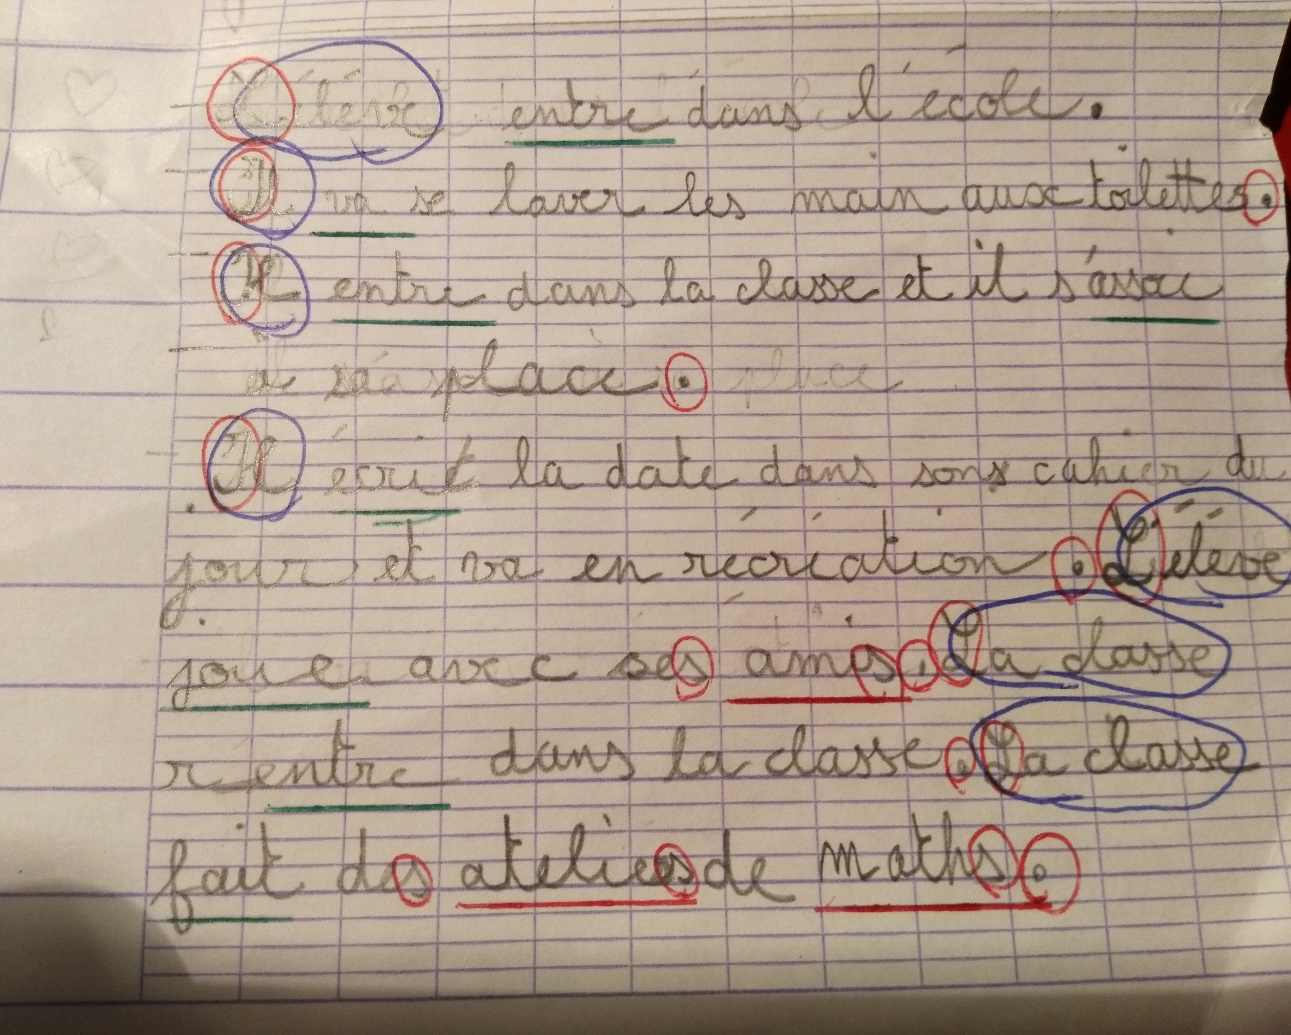 L'élève entre dans l'école.
Il va se laver les main aux toilettes.
Il entre dans la classe et il s'assoie
à sa place. place
Il écrit la date dans sons cahier du
jour et va en récréation. L'élève
joue avec ses amis. La classe
rentre dans la classe. La classe
fait des ateliers de maths.